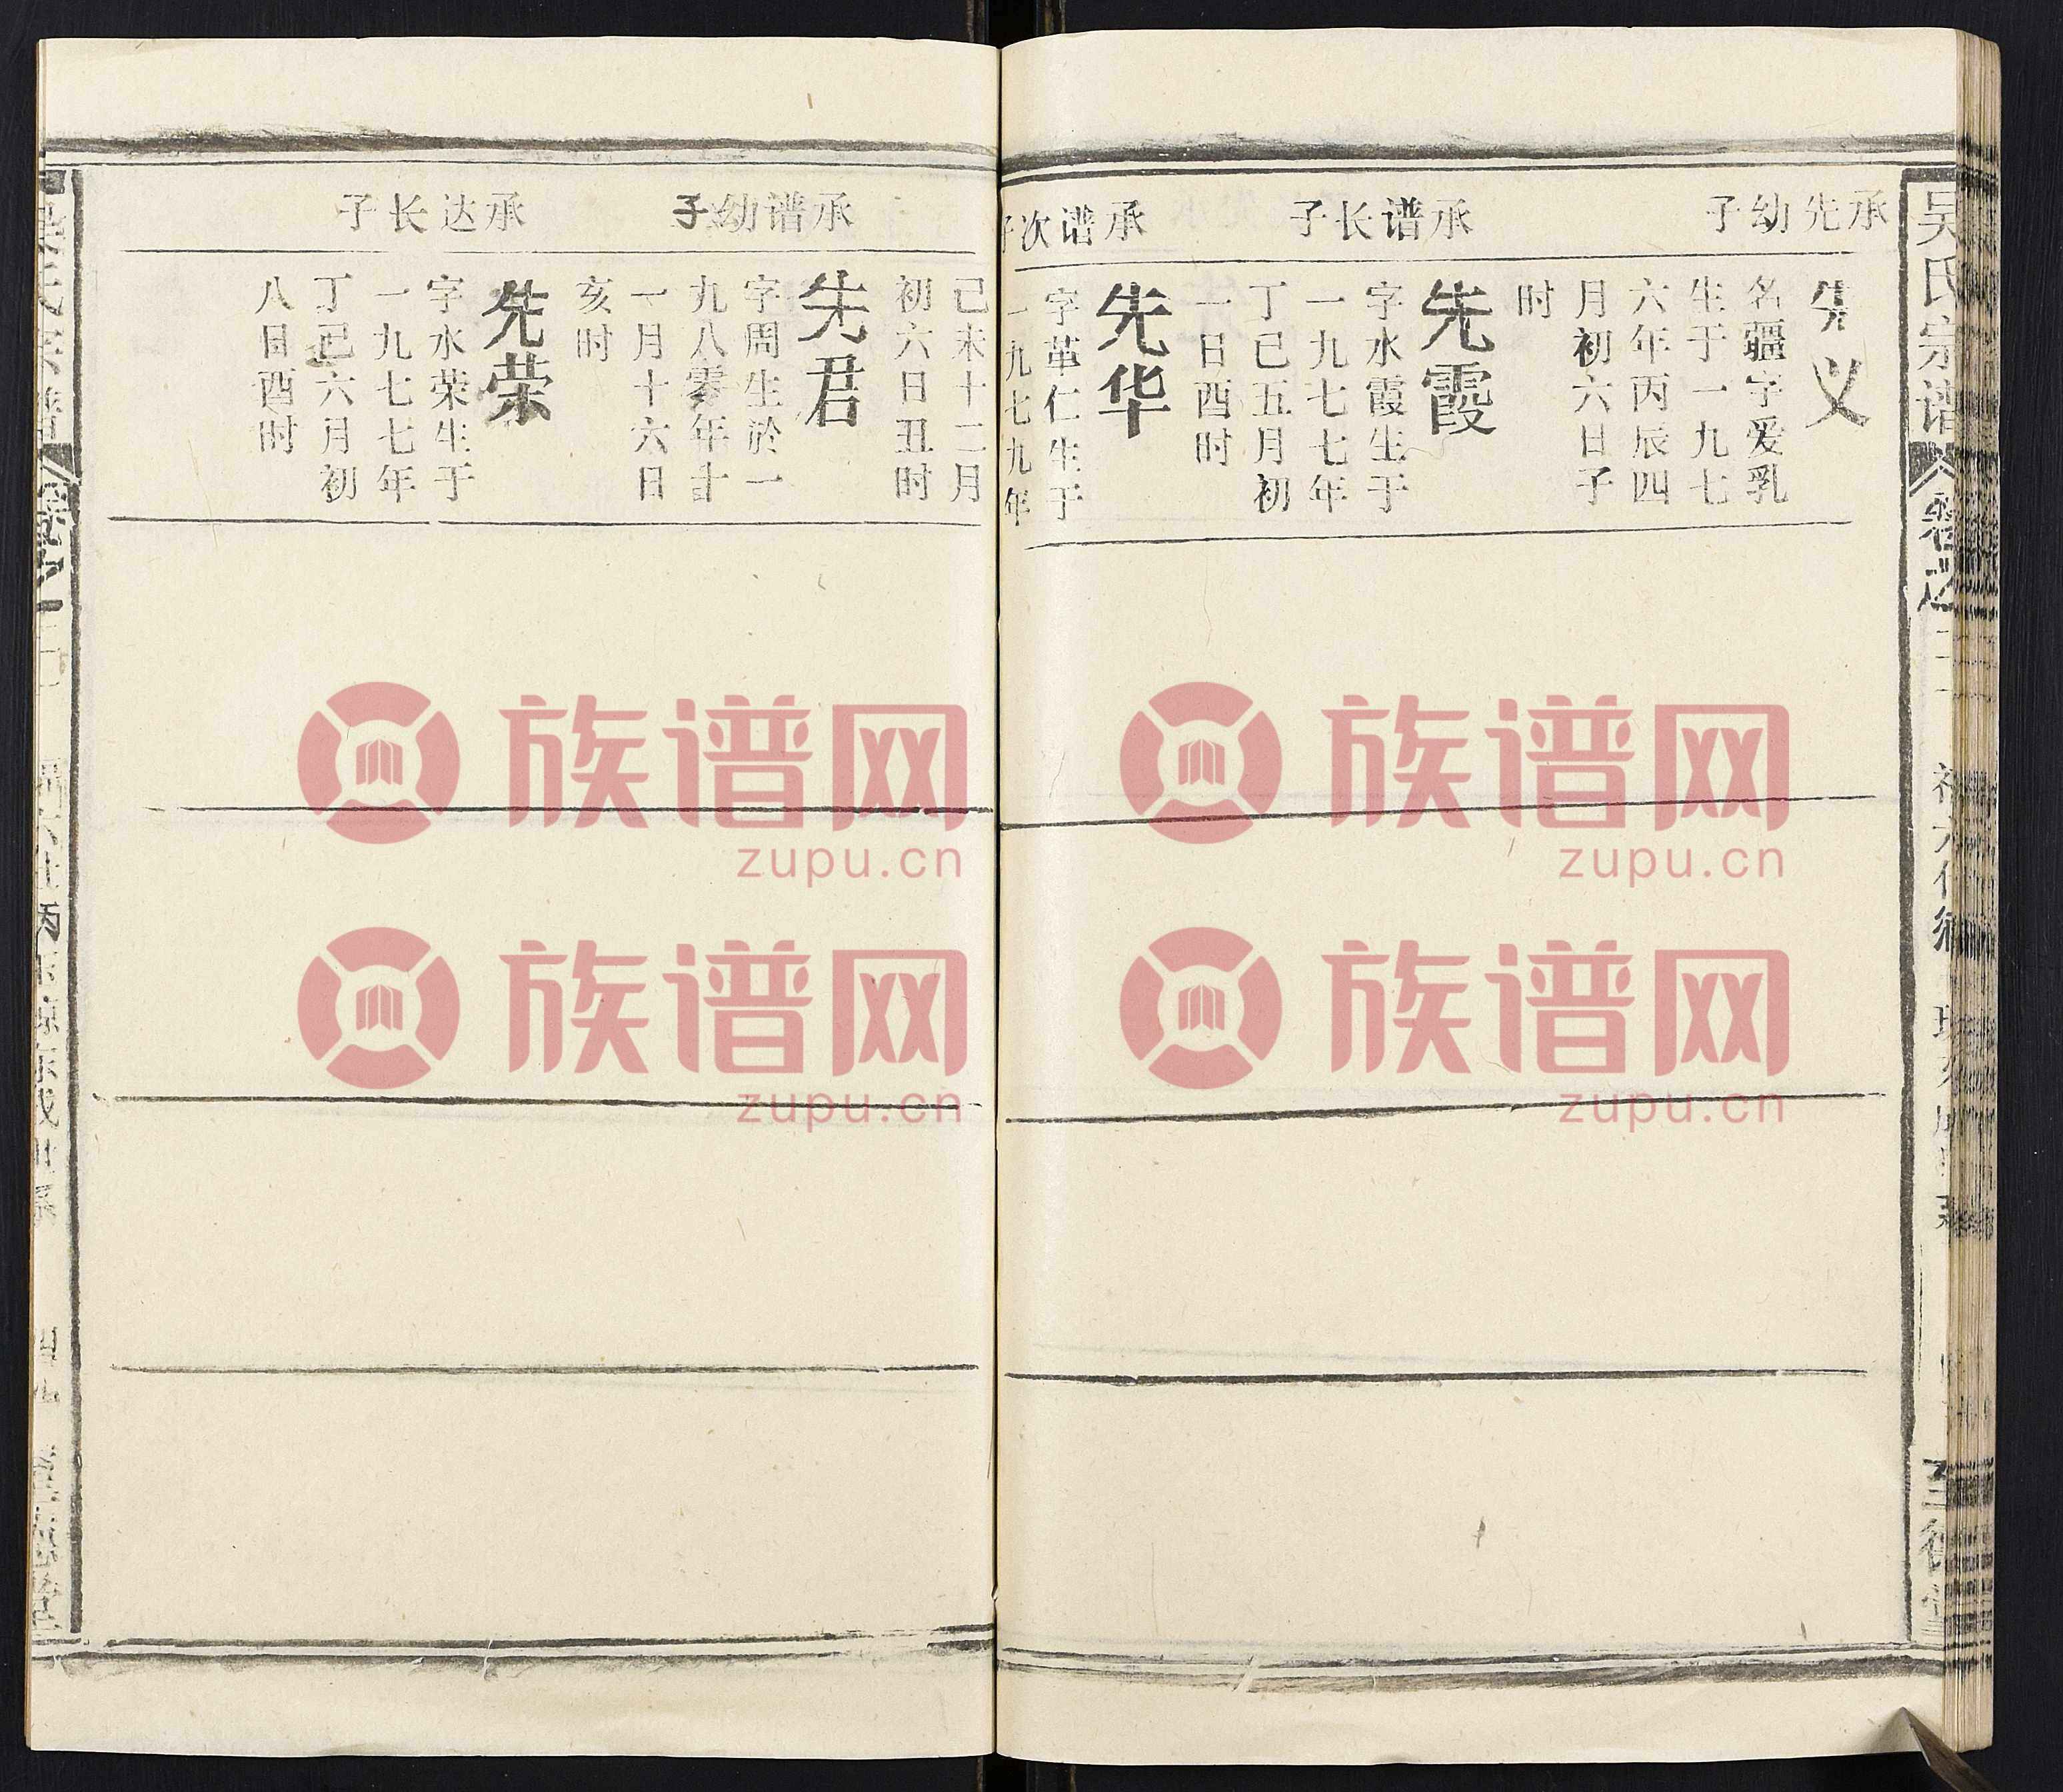 吴氏宗谱
卷之二十
至德堂
承先幼子
先义
名疆字爱乳
生于一九七
六年丙辰四
月初六日子
时
承谱长子
先霞
字水霞生于
一九七七年
丁己五月初
一日酉时
承谱次子
先华
字革仁生于
一九七九年
己未十二月
初六日丑时
承谱幼子
先君
字周生於一
九八零年十
一月十六日
亥时
承达长子
先荣
字水荣生于
一九七七年
丁己六月初
八日酉时
族谱网
zupu.cn
族谱网
zupu.cn
族谱网
zupu.cn
族谱网
zupu.cn